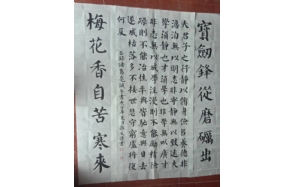 寶劍鋒從磨礪出
夫君子之行靜以修身儉以養德非
淡泊無以明志非寧靜無以致遠夫
學須靜也才須學也非學無以廣才
非志無以成學淫慢則不能勵精險
躁則不能冶性年與時馳意與日去
遂成枯落多不接世悲守窮廬將復
何及
諸葛亮誡子書
梅花香自苦寒來